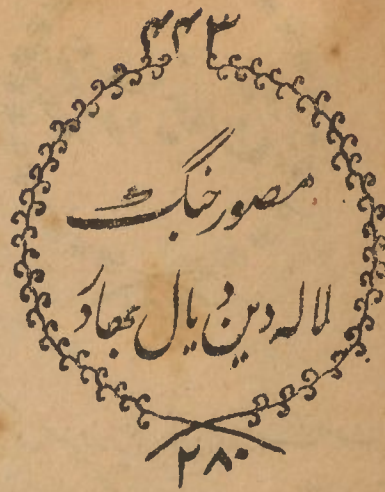 ۴۴۳
مصور جنگ
لالہ دین دیال بھادر
۲۸۰